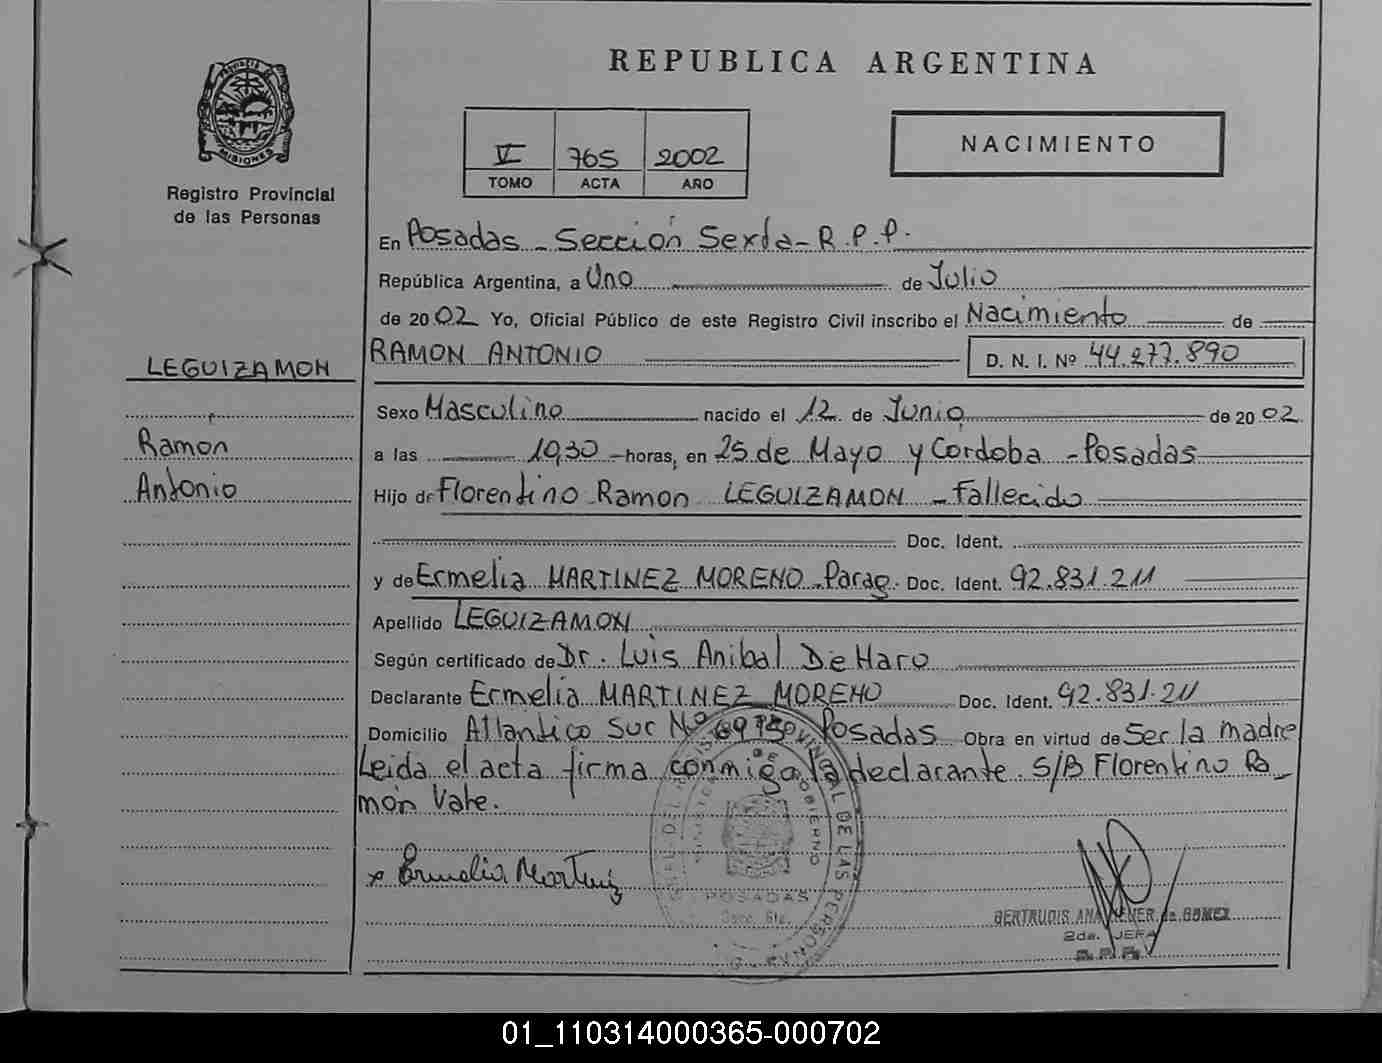 REPUBLICA ARGENTINA
PROVINCIA DE
MISIONES
Registro Provincial
de las Personas
V 765 2002
TOMO ACTA AÑO
NACIMIENTO
En Posadas - Sección Sexta - R.P.P.
República Argentina, a Uno de Julio
de 2002 Yo, Oficial Público de este Registro Civil inscribo el Nacimiento de
RAMON ANTONIO D. N. I. Nº 44.277.890
LEGUIZAMON
Ramón
Antonio
Sexo Masculino nacido el 12 de Junio de 2002
a las 10,30 horas, en 25 de Mayo y Cordoba - Posadas
Hijo de Florentino Ramon LEGUIZAMON - Fallecido
Doc. Ident.
y de Ermelia MARTINEZ MORENO - Parag. Doc. Ident. 92.831.211
Apellido LEGUIZAMON
Según certificado de Dr. Luis Anibal De Haro
Declarante Ermelia MARTINEZ MORENO Doc. Ident. 92.831.211
Domicilio Atlantico Sur Nº Posadas Obra en virtud de Ser la madre
Leida el acta firma conmigo la declarante. S/B Florentino Ra-
món Vale.
x Ermelia Martinez
POSADAS
Secc. 6ta.
GERTRUDIS ANA de GOMEZ
2da. JEFA
R.P.P.
01_110314000365-000702